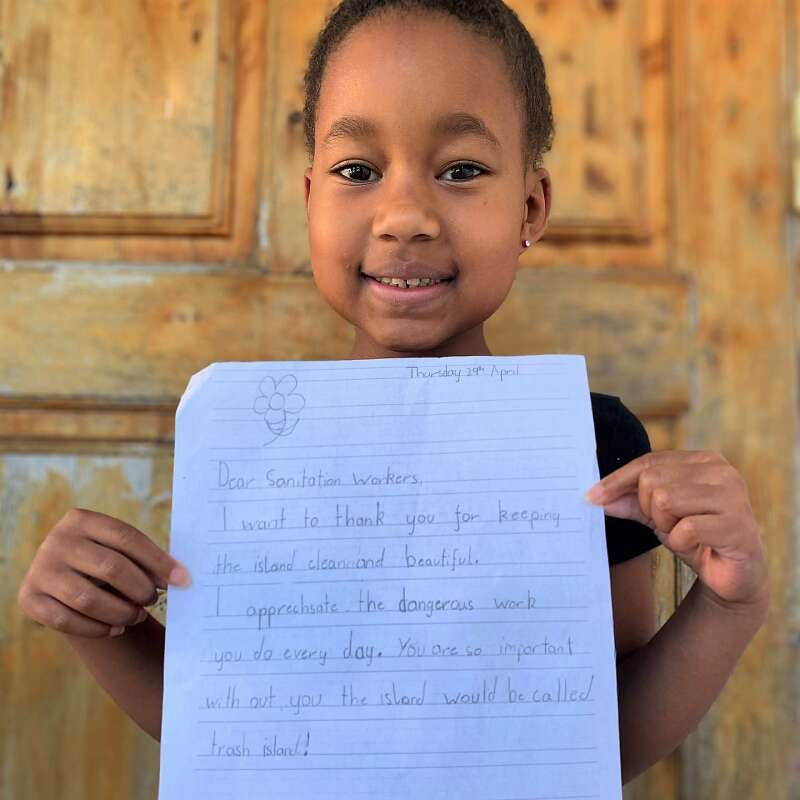 Thursday 29th April
Dear Sanitation Workers,
I want to thank you for keeping
the island clean and beautiful.
I apprechsate the dangerous work
you do every day. You are so important
with out you the island would be called
trash island!